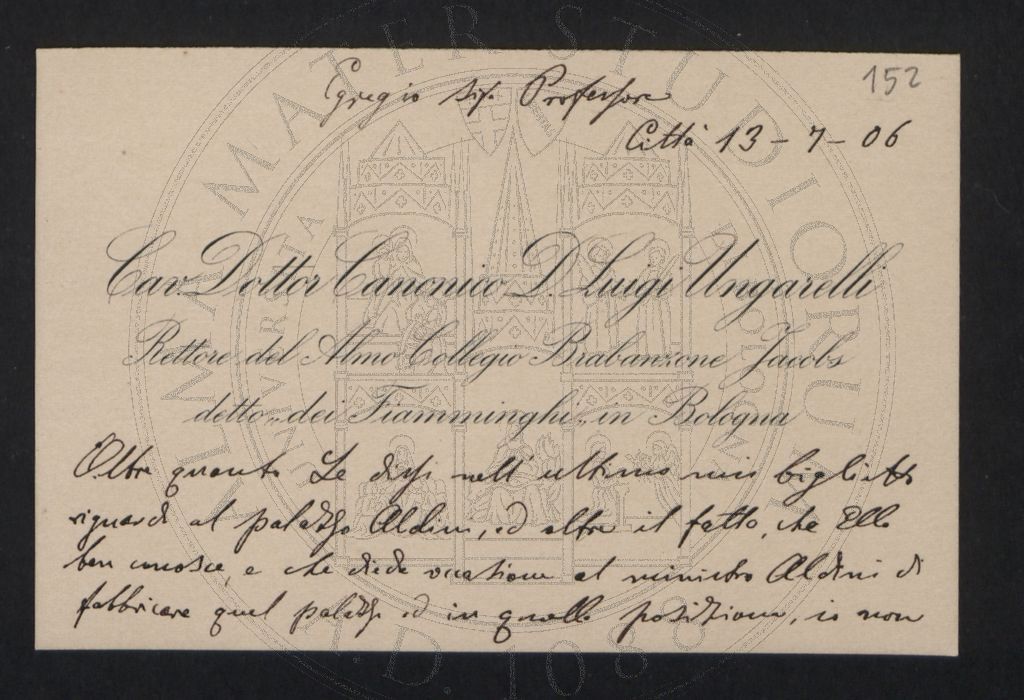 152
Egregio Sig. Professore
Città 13-7-06
Cav. Dottor Canonico D. Luigi Ungarelli
Rettore del Almo Collegio Brabanzone Jacobs
detto „dei Fiamminghi„ in Bologna
Oltre quanto Le dissi nell'ultimo mio biglietto
riguardo al palazzo Aldini, ed oltre il fatto, che Ella
ben conosce, e che diede occasione al ministro Aldini di
fabbricare quel palazzo ed in quella posizione, io non
ALMA MATER STUDIORUM
A.D. 1088